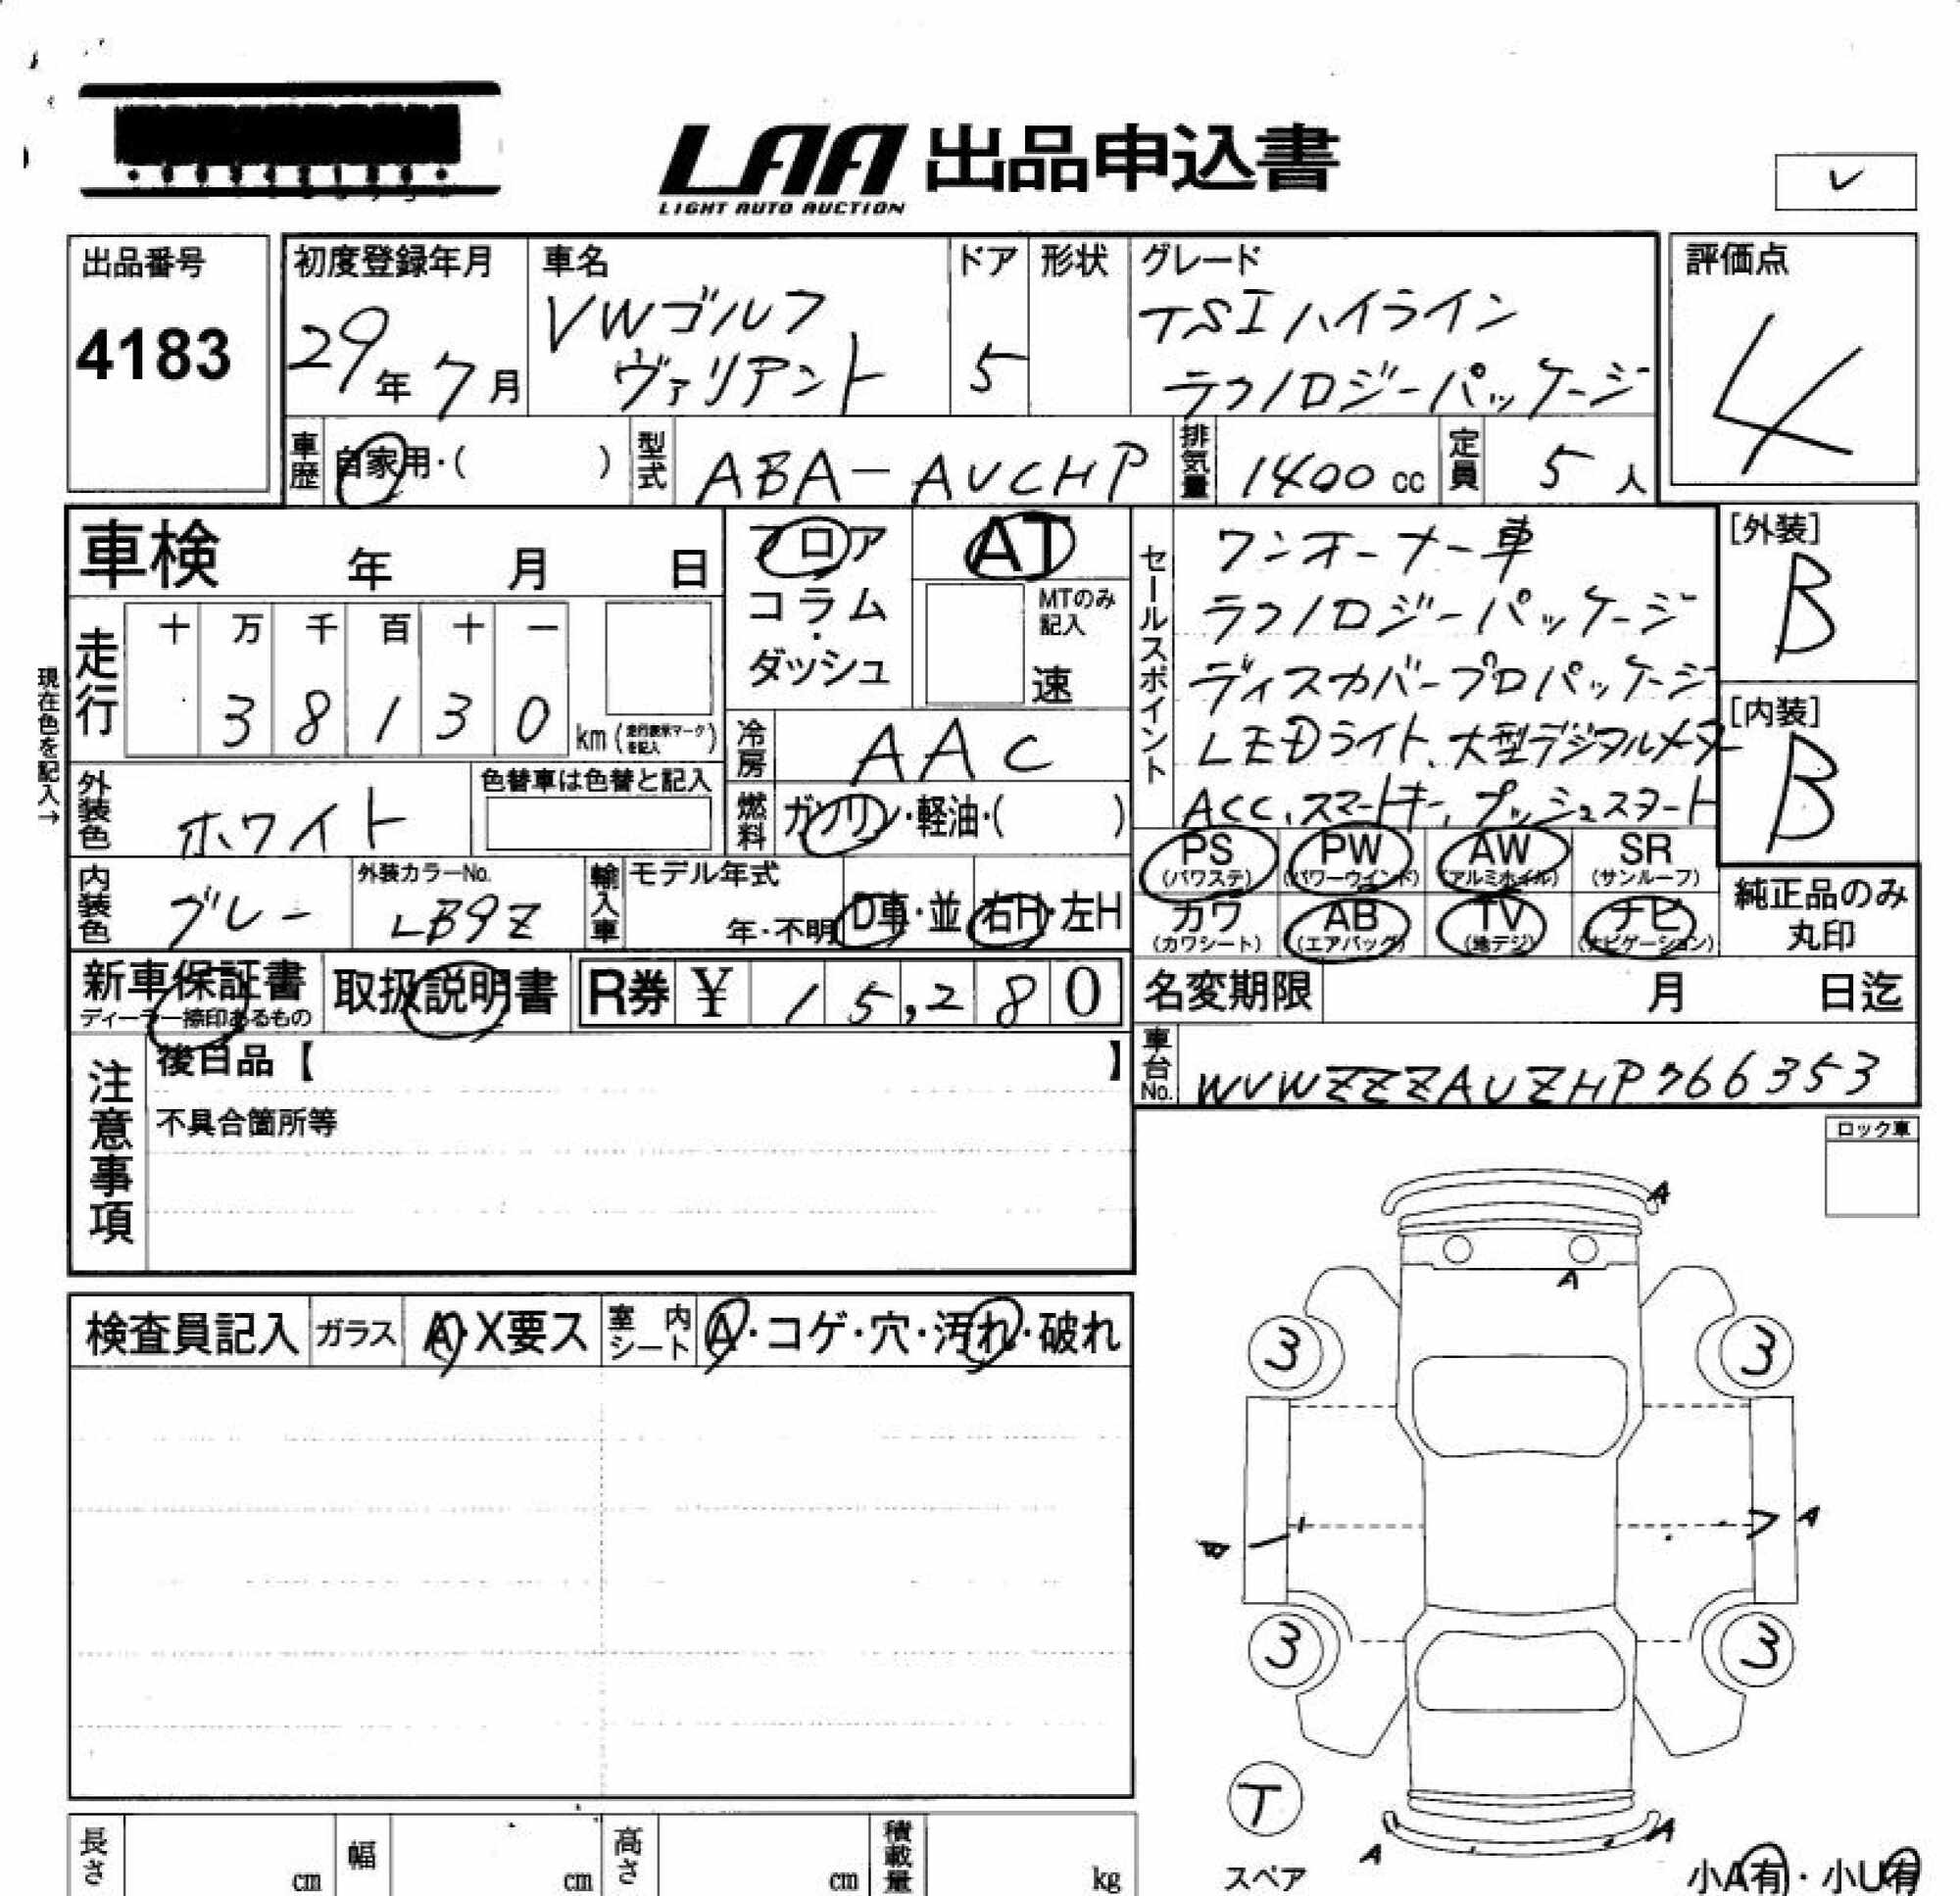 LAA 出品申込書
LIGHT AUTO AUCTION
レ
出品番号
4183
初度登録年月
29年7月
車名
VWゴルフ
ヴァリアント
ドア
5
形状
グレード
TSIハイライン
テクノロジーパッケージ
評価点
4
車歴 自家用・( )
型式 ABA-AUCHP
排気量 1400cc
定員 5人
車検 年 月 日
フロア
コラム
・
ダッシュ
AT
MTのみ
記入
速
セールスポイント
ワンオーナー車
テクノロジーパッケージ
ディスカバープロパッケージ
LEDライト、大型デジタルメーター
ACC、スマートキー、プッシュスタート
[外装]
B
[内装]
B
現在色を記入→
走行
十 万 千 百 十 一
3 8 1 3 0 km(走行表示マークを記入)
冷房 AAC
燃料 ガソリン・軽油・( )
外装色 ホワイト
色替車は色替と記入
内装色 グレー
外装カラーNo.
LB9Z
輸入車
モデル年式
年・不明
D車・並
右H・左H
PS
(パワステ)
PW
(パワーウインド)
AW
(アルミホイル)
SR
(サンルーフ)
カワ
(カワシート)
AB
(エアバッグ)
TV
(地デジ)
ナビ
(ナビゲーション)
純正品のみ
丸印
新車保証書
ディーラー捺印あるもの
取扱説明書
R券 ¥ 15,280
名変期限 月 日迄
車台No. WVWZZZAUZHP766353
注意事項
後日品【 】
不具合箇所等
ロック車
検査員記入
ガラス A・X要ス
室内シート A・コゲ・穴・汚れ・破れ
A
A
3
3
A
A
3
3
T
スペア
A
A
小A有・小U有
長さ cm
幅 cm
高さ cm
積載量 kg